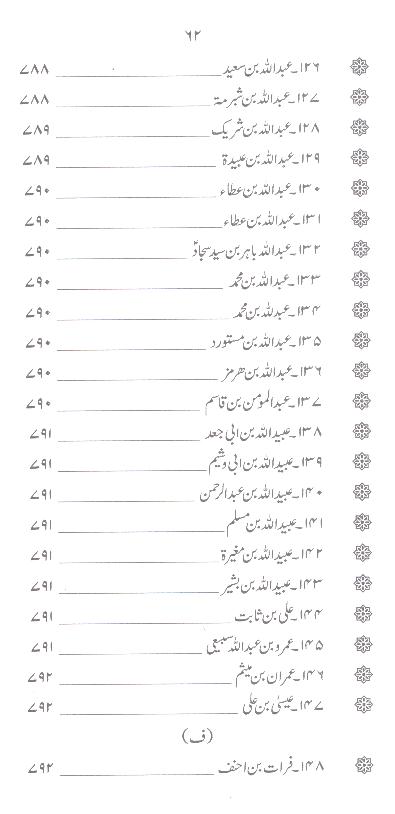 ۶۲
۱۲۶۔عبداللہ بن سعید ۷۸۸
۱۲۷۔عبداللہ بن شبرمۃ ۷۸۸
۱۲۸۔عبداللہ بن شریک ۷۸۹
۱۲۹۔عبداللہ بن عبیدۃ ۷۸۹
۱۳۰۔عبداللہ بن عطاء ۷۹۰
۱۳۱۔عبداللہ بن عطاء ۷۹۰
۱۳۲۔عبداللہ باہر بن سید سجادؑ ۷۹۰
۱۳۳۔عبداللہ بن محمد ۷۹۰
۱۳۴۔عبداللہ بن محمد ۷۹۰
۱۳۵۔عبداللہ بن مستورد ۷۹۰
۱۳۶۔عبداللہ بن ھرمز ۷۹۰
۱۳۷۔عبدالمؤمن بن قاسم ۷۹۰
۱۳۸۔عبیداللہ بن ابی جعد ۷۹۱
۱۳۹۔عبیداللہ بن ابی وشیم ۷۹۱
۱۴۰۔عبیداللہ بن عبدالرحمن ۷۹۱
۱۴۱۔عبیداللہ بن مسلم ۷۹۱
۱۴۲۔عبیداللہ بن مغیرۃ ۷۹۱
۱۴۳۔عبیداللہ بن بشیر ۷۹۱
۱۴۴۔علی بن ثابت ۷۹۱
۱۴۵۔عمرو بن عبداللہ سبیعی ۷۹۱
۱۴۶۔عمران بن میثم ۷۹۲
۱۴۷۔عیسیٰ بن علی ۷۹۲
(ف)
۱۴۸۔فرات بن احنف ۷۹۲